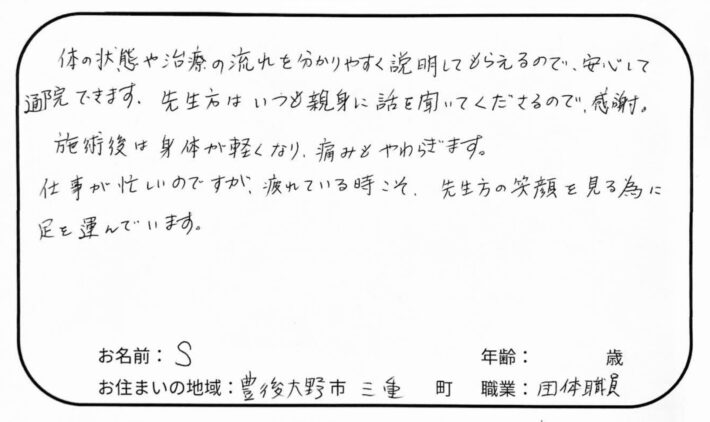 体の状態や治療の流れを分かりやすく説明してもらえるので、安心して
通院できます、先生方はいつも親身に話を聞いてくださるので、感謝。
施術後は身体が軽くなり、痛みもやわらぎます。
仕事が忙しいのですが、疲れている時こそ、先生方の笑顔を見る為に
足を運んでいます。
お名前：S 年齢： 歳
お住まいの地域：豊後大野市 三重 町 職業：団体職員